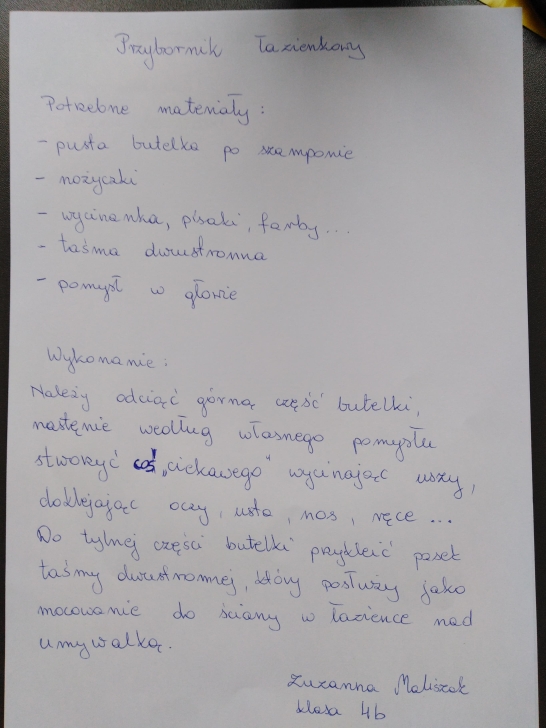 Przybornik łazienkowy
Potrzebne materiały:
- pusta butelka po szamponie
- nożyczki
- wycinanka, pisaki, farby...
- taśma dwustronna
- pomysł w głowie
Wykonanie:
Należy odciąć górną część butelki,
następnie według własnego pomysłu
stworzyć coś "ciekawego" wycinając uszy,
doklejając oczy, usta, nos, ręce ...
Do tylnej części butelki przykleić pasek
taśmy dwustronnej, który posłuży jako
mocowanie do ściany w łazience nad
umywalką.
Zuzanna Maliszak
klasa 4b